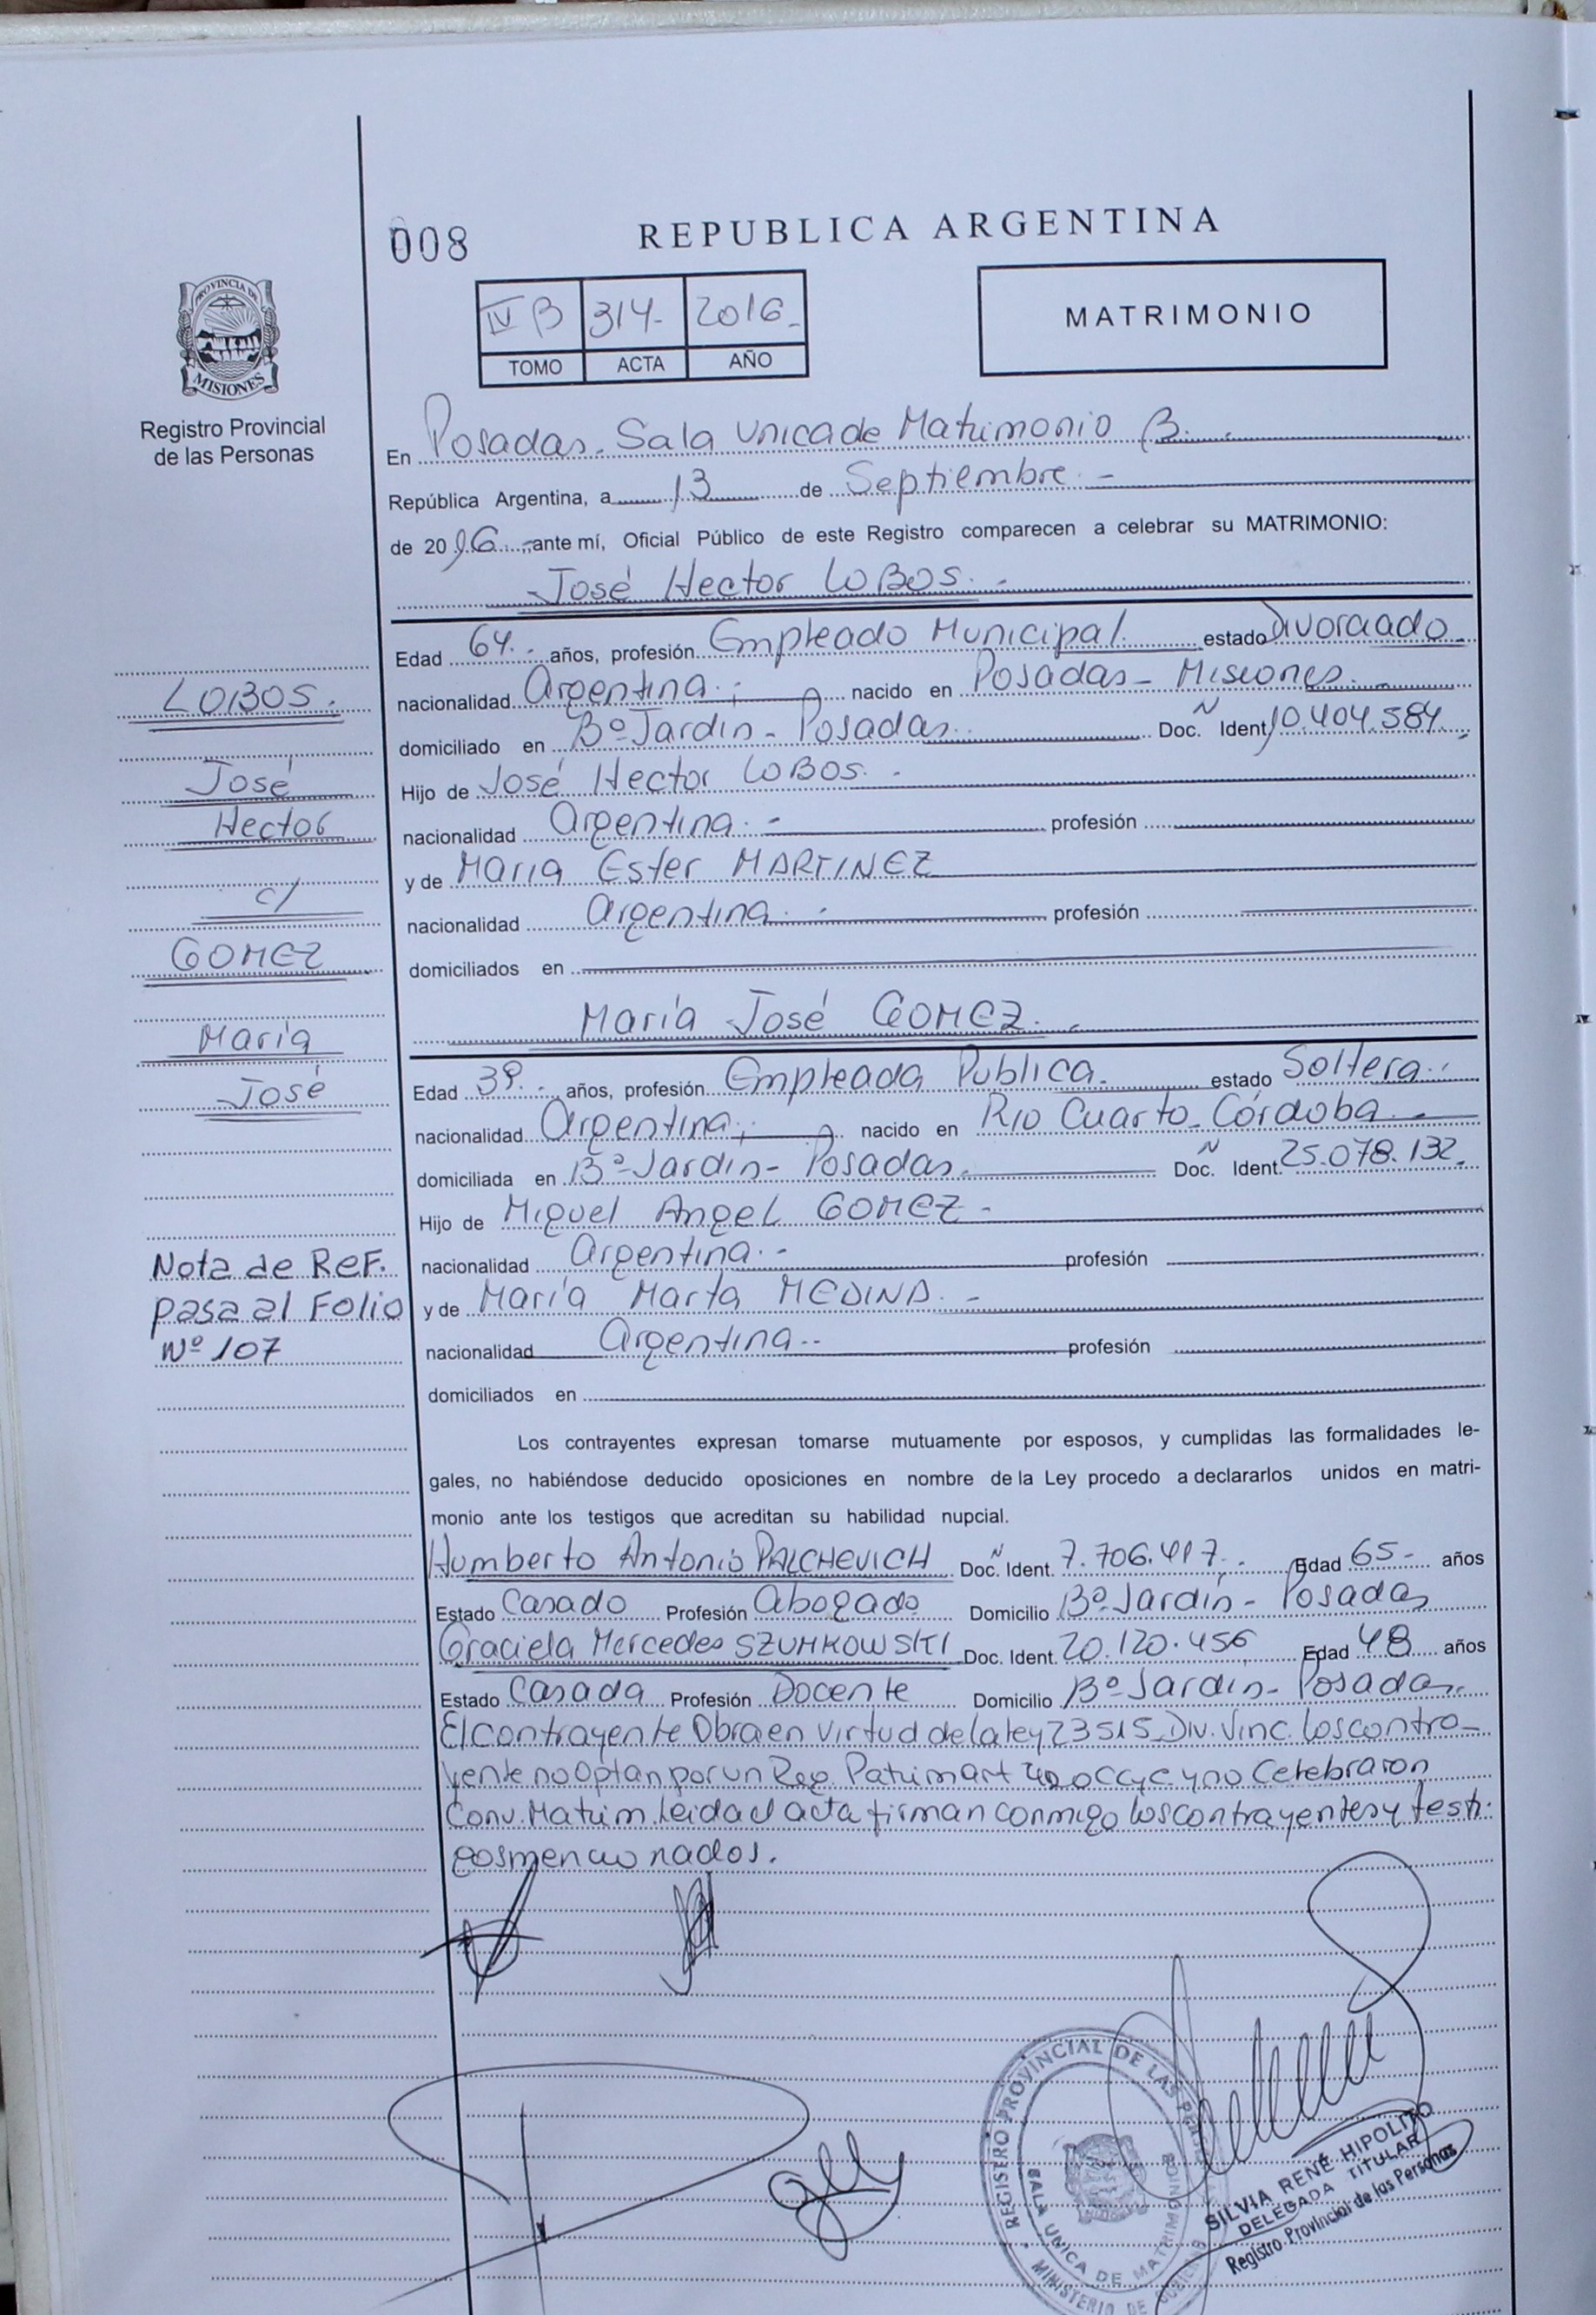 008
REPUBLICA ARGENTINA
PROVINCIA DE
MISIONES
Registro Provincial
de las Personas
IV B 314- 2016-
TOMO ACTA AÑO
MATRIMONIO
En Posadas. Sala Unica de Matrimonio B.
República Argentina, a 13 de Septiembre.-
de 2016 ante mí, Oficial Público de este Registro comparecen a celebrar su MATRIMONIO:
José Hector LOBOS.-
Edad 64.- años, profesión Empleado Municipal. estado Divorciado
nacionalidad Argentina.; nacido en Posadas- Misiones.
domiciliado en Bº Jardín- Posadas. Doc. N Ident. 10.404.584.
Hijo de José Hector LOBOS.-
nacionalidad Argentina.- profesión
y de Maria Ester MARTINEZ
nacionalidad Argentina.- profesión
domiciliados en
María José GOMEZ.-
Edad 39.- años, profesión Empleada Publica. estado Soltera.
nacionalidad Argentina; nacido en Rio Cuarto- Córdoba.-
domiciliada en Bº Jardín- Posadas. Doc. N Ident. 25.078.132.
Hijo de Miguel Angel GOMEZ.-
nacionalidad Argentina.- profesión
y de María Marta MEDINA.-
nacionalidad Argentina.- profesión
domiciliados en
LOBOS.
José
Hector
c/
GOMEZ
María
José
Nota de Ref.
pasa al Folio
Nº 107
Los contrayentes expresan tomarse mutuamente por esposos, y cumplidas las formalidades le-
gales, no habiéndose deducido oposiciones en nombre de la Ley procedo a declararlos unidos en matri-
monio ante los testigos que acreditan su habilidad nupcial.
Humberto Antonio PALCHEVICH Doc. N Ident. 7.706.417. Edad 65- años
Estado Casado Profesión Abogado Domicilio Bº Jardín- Posadas
Graciela Mercedes SZUMKOWSKI Doc. Ident. 20.120.456 Edad 48 años
Estado Casada Profesión Docente Domicilio Bº Jardín- Posadas.
El contrayente Obra en Virtud de la ley 23515 Div. Vinc. los contra-
yente no Optan por un Reg. Patrim art CCyC y no Celebraron
Conv. Matrim. Leida el acta firman conmigo los contrayentes y testi-
gos mencionados.
REGISTRO PROVINCIAL DE LAS PERSONAS
SALA UNICA DE MATRIMONIOS
MINISTERIO DE GOBIERNO
SILVIA RENÉ HIPOLITO
DELEGADA TITULAR
Registro Provincial de las Personas